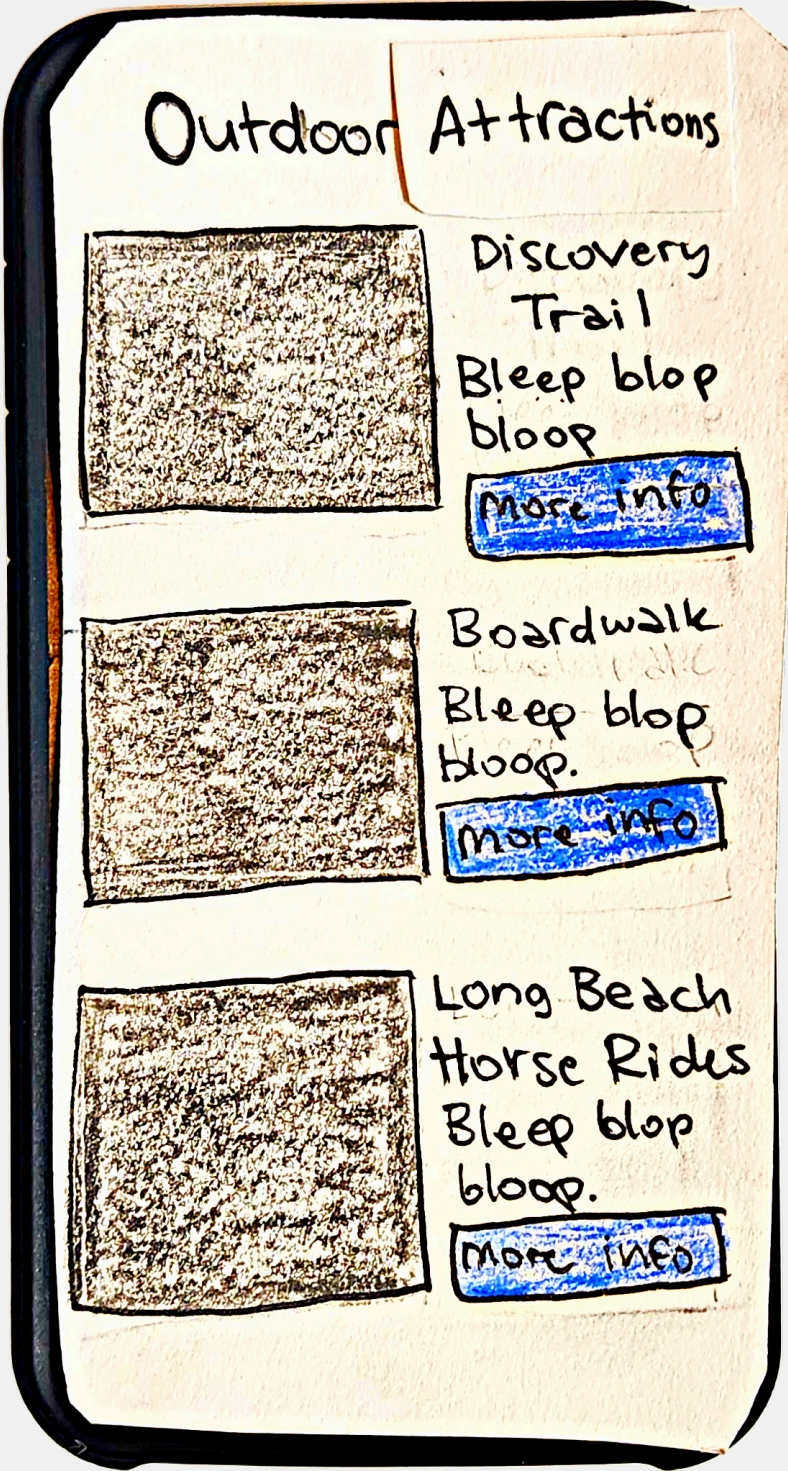 Outdoor Attractions
Discovery
Trail
Bleep blop
bloop
more info
Boardwalk
Bleep blop
bloop.
more info
Long Beach
Horse Rides
Bleep blop
bloop.
more info